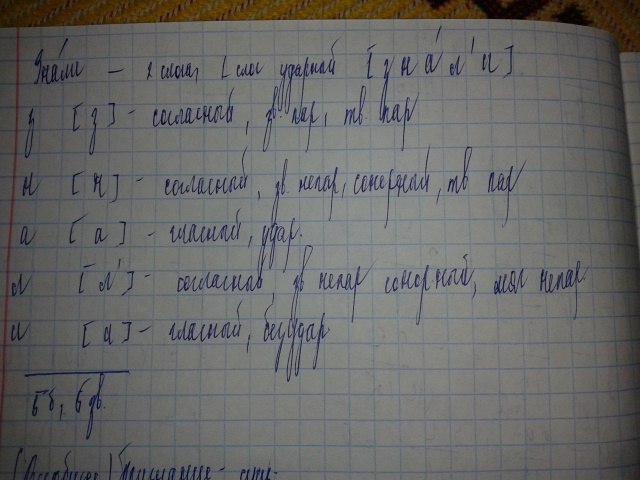 Зна́ли – 2 слога, 1 слог ударной [зна́л'и]
з [з] – согласный, зв. пар, тв пар
н [н] – согласный, зв. непар, сонорный, тв пар
а [а] – гласный, удар.
л [л'] – согласный, зв непар сонорный, мяг непар.
и [и] – гласный, безудар.
5 б, 5 зв.